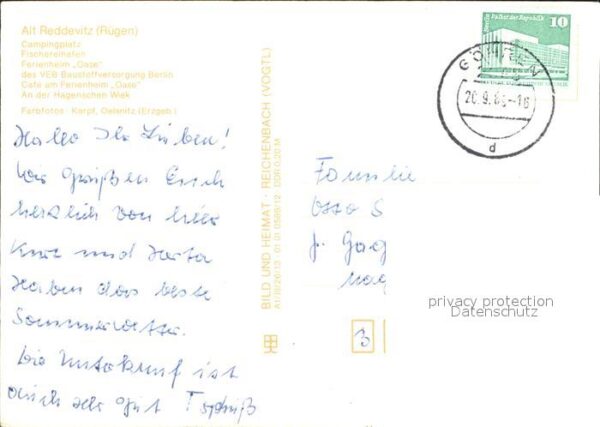 Alt Reddevitz (Rügen)
Campingplatz
Fischereihafen
Ferienheim „Oase"
des VEB Baustoffversorgung Berlin
Café am Ferienheim „Oase"
An der Hagenschen Wiek
Farbfotos: Karpf, Oelsnitz (Erzgeb.)
Hallo Ihr Lieben!
Wir Grüßen Euch
herzlich von hier
Kurt und Herta
Haben das beste
Sommerwetter.
Die Unterkunft ist
auch sehr gut
BILD UND HEIMAT · REICHENBACH (VOGTL)
A1/III/26/13 01 01 0569/12 DDR 0,20 M
Berlin Palast der Republik 10
DDR
GÖHREN
20.9.8 -16
d
Familie
Otto S
privacy protection
Datenschutz